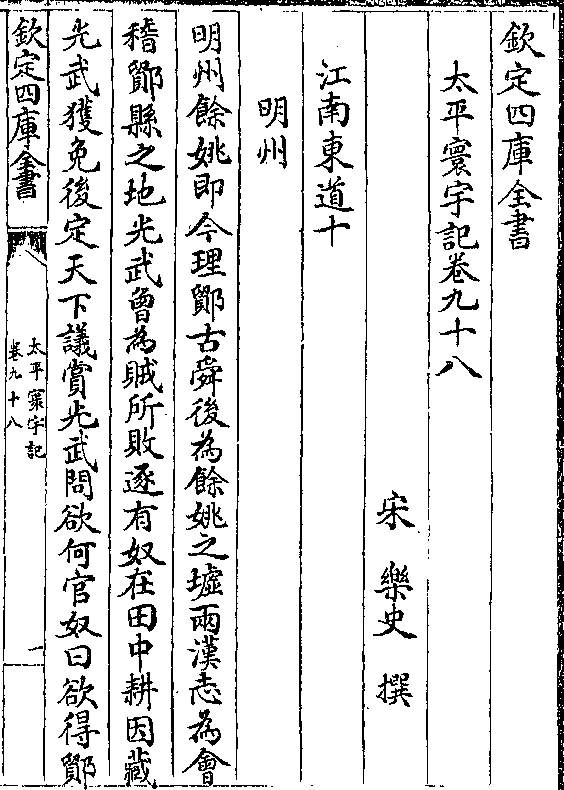 欽定四庫全書
太平寰宇記卷九十八
宋 樂史 撰
江南東道十
明州
明州餘姚即今理鄮古舜後為餘姚之墟兩漢志為會
稽鄮縣之地光武曾為賊所敗逐有奴在田中耕因藏
光武獲免後定天下議賞光武問欲何官奴曰欲得鄮
欽定四庫全書
太平寰宇記
卷九十八
一